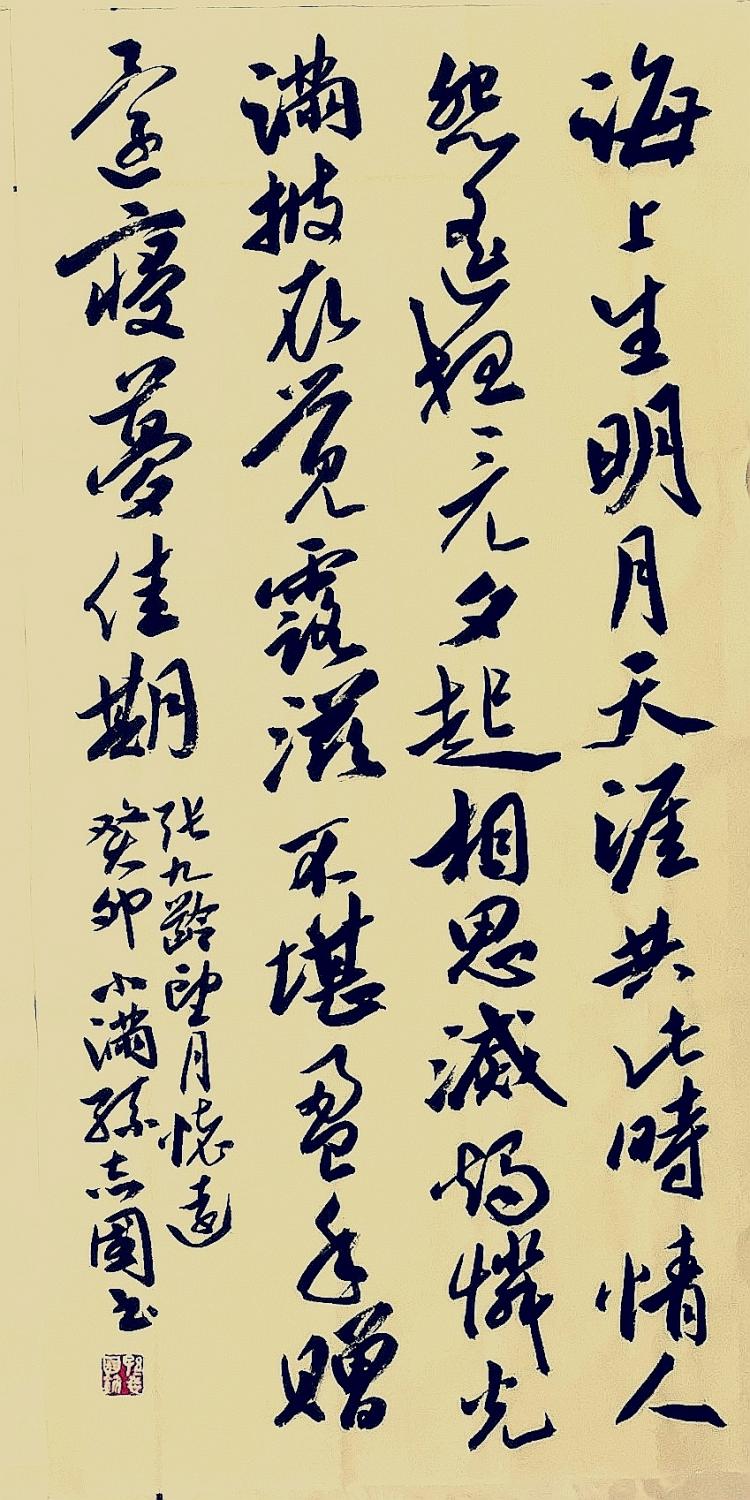 海上生明月天涯共此時情人
怨遙夜竟夕起相思滅燭憐光
滿披衣覺露滋不堪盈手贈
還寢夢佳期
張九齡望月懷遠
癸卯小滿孫志國书